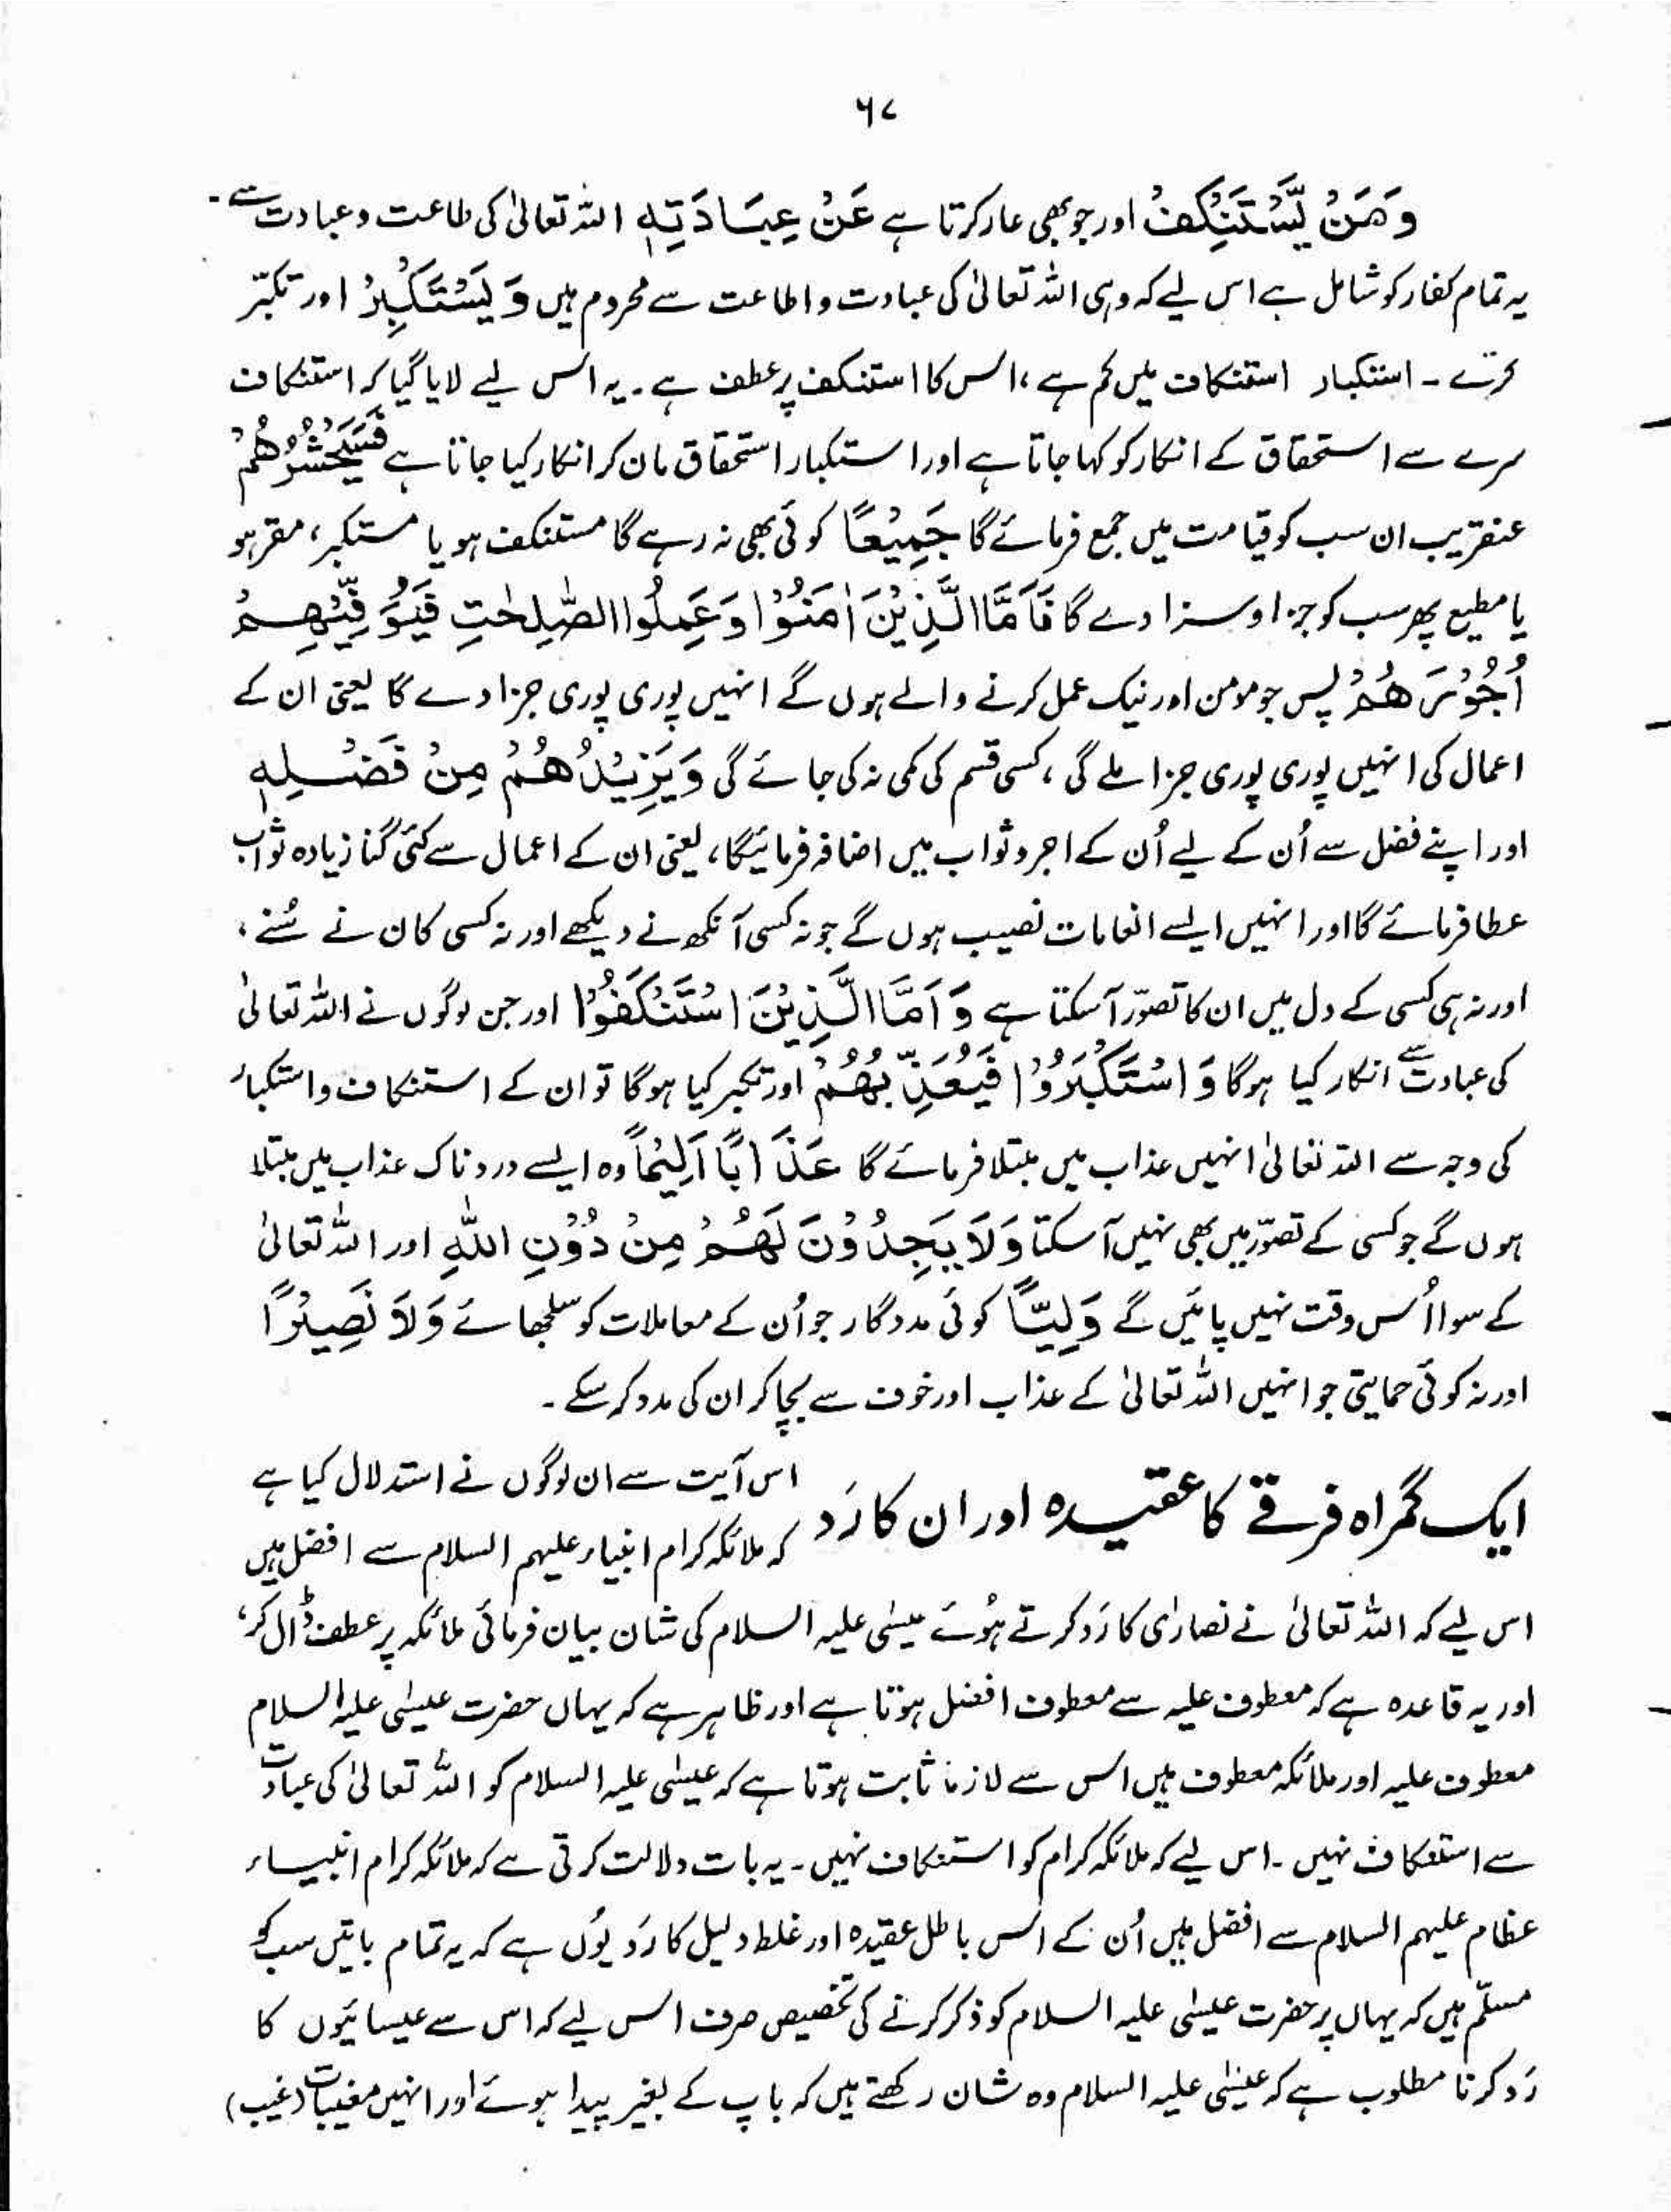 ۶۷
وَمَنْ يَّسْتَنْكِفْ اور جو بھی عار کرتا ہے عَنْ عِبَادَتِهٖ اللہ تعالیٰ کی طاعت و عبادت سے ۔
یہ تمام کفار کو شامل ہے اس لیے کہ وہی اللہ تعالیٰ کی عبادت و اطاعت سے محروم ہیں وَيَسْتَكْبِرْ اور تکبّر
کرے ۔ استکبار استنکاف میں کم ہے ، اس کا استنکف پر عطف ہے ۔ یہ اس لیے لایا گیا کہ استنکاف
سرے سے استحقاق کے انکار کو کہا جاتا ہے اور استکبار استحقاق مان کر انکار کیا جاتا ہے فَسَيَحْشُرُهُمْ
عنقریب ان سب کو قیامت میں جمع فرمائے گا جَمِيْعًا کوئی بھی نہ رہے گا مستنکف ہو یا مستکبر ، مقر ہو
یا مطیع پھر سب کو جزا و سزا دے گا فَاَمَّا الَّذِيْنَ اٰمَنُوْا وَعَمِلُوا الصّٰلِحٰتِ فَيُوَفِّيْهِمْ
اُجُوْرَهُمْ پس جو مومن اور نیک عمل کرنے والے ہوں گے انہیں پوری پوری جزا دے گا یعنی ان کے
اعمال کی انہیں پوری پوری جزا ملے گی ، کسی قسم کی کمی نہ کی جائے گی وَيَزِيْدُهُمْ مِنْ فَضْلِهٖ
اور اپنے فضل سے اُن کے لیے اُن کے اجر و ثواب میں اضافہ فرمائیگا ، یعنی ان کے اعمال سے کئی گنا زیادہ ثواب
عطا فرمائے گا اور انہیں ایسے انعامات نصیب ہوں گے جو نہ کسی آنکھ نے دیکھے اور نہ کسی کان نے سُنے ،
اور نہ ہی کسی کے دل میں ان کا تصوّر آ سکتا ہے وَاَمَّا الَّذِيْنَ اسْتَنْكَفُوْا اور جن لوگوں نے اللہ تعالیٰ
کی عبادت سے انکار کیا ہوگا وَاسْتَكْبَرُوْا فَيُعَذِّبُهُمْ اور تکبر کیا ہوگا تو ان کے استنکاف و استکبار
کی وجہ سے اللہ تعالیٰ انہیں عذاب میں مبتلا فرمائے گا عَذَابًا اَلِيْمًا وہ ایسے دردناک عذاب میں مبتلا
ہوں گے جو کسی کے تصوّر میں بھی نہیں آ سکتا وَلَا يَجِدُوْنَ لَهُمْ مِنْ دُوْنِ اللّٰهِ اور اللہ تعالیٰ
کے سوا اُس وقت نہیں پائیں گے وَلِيًّا کوئی مددگار جو اُن کے معاملات کو سلجھائے وَلَا نَصِيْرًا
اور نہ کوئی حمایتی جو انہیں اللہ تعالیٰ کے عذاب اور خوف سے بچا کر ان کی مدد کر سکے ۔
ایک گمراہ فرقے کا عقیدہ اور ان کا رَد
اس آیت سے ان لوگوں نے استدلال کیا ہے
کہ ملائکہ کرام انبیاء علیہم السلام سے افضل ہیں
اس لیے کہ اللہ تعالیٰ نے نصاریٰ کا رَد کرتے ہُوئے عیسٰی علیہ السلام کی شان بیان فرمائی ملائکہ پر عطف ڈال کر ،
اور یہ قاعدہ ہے کہ معطوف علیہ سے معطوف افضل ہوتا ہے اور ظاہر ہے کہ یہاں حضرت عیسٰی علیہ السلام
معطوف علیہ اور ملائکہ معطوف ہیں اس سے لازماً ثابت ہوتا ہے کہ عیسٰی علیہ السلام کو اللہ تعالیٰ کی عبادت
سے استنکاف نہیں ۔ اس لیے کہ ملائکہ کرام کو استنکاف نہیں ۔ یہ بات دلالت کرتی ہے کہ ملائکہ کرام انبیاء
عظام علیہم السلام سے افضل ہیں اُن کے اس باطل عقیدہ اور غلط دلیل کا رَد یُوں ہے کہ یہ تمام باتیں سب کو
مسلّم ہیں کہ یہاں پر حضرت عیسٰی علیہ السلام کو ذکر کرنے کی تخصیص صرف اس لیے کہ اس سے عیسائیوں کا
رَد کرنا مطلوب ہے کہ عیسٰی علیہ السلام وہ شان رکھتے ہیں کہ باپ کے بغیر پیدا ہوئے اور انہیں مغیبات (غیب)